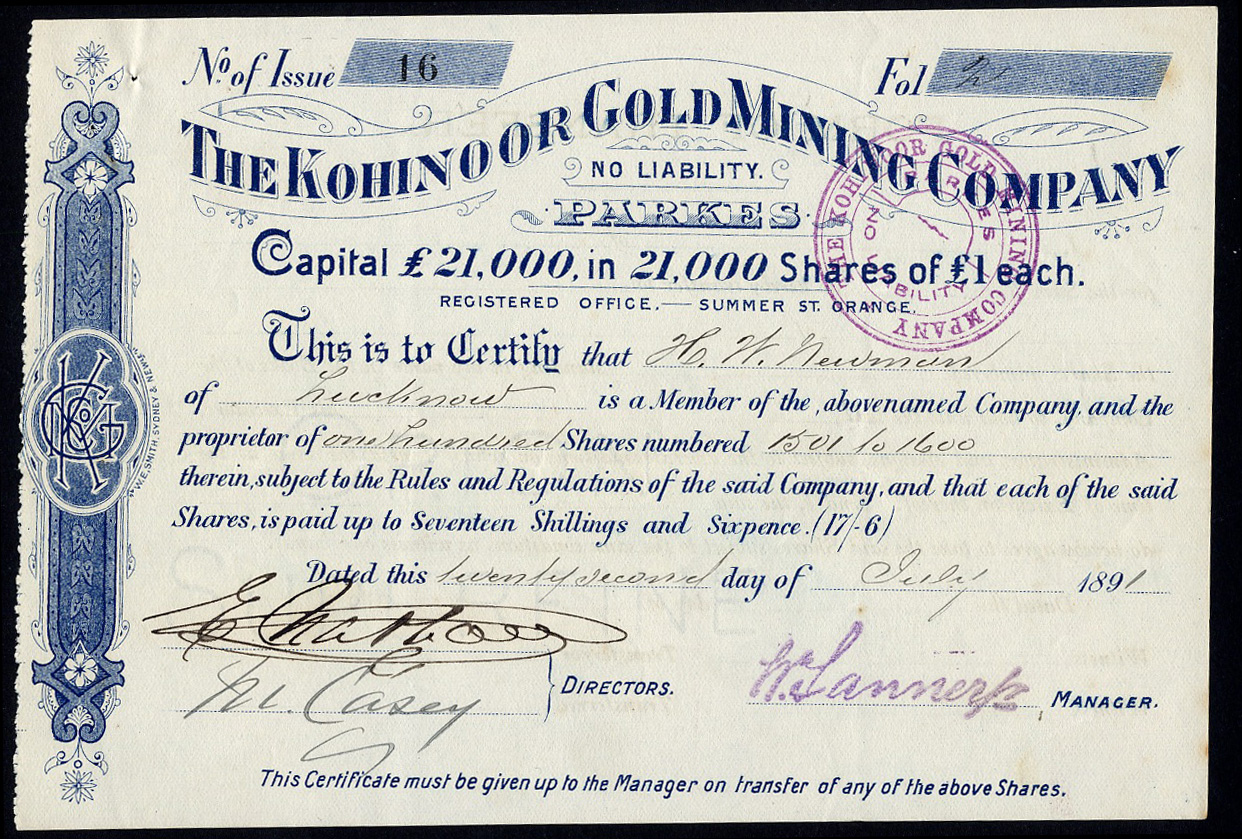 No. of Issue 16
Fol
THE KOHINOOR GOLD MINING COMPANY
NO LIABILITY.
PARKES
Capital £21,000, in 21,000 Shares of £1 each.
REGISTERED OFFICE.— SUMMER ST. ORANGE.
This is to Certify that H. W. Newman
of Lucknow is a Member of the, abovenamed Company, and the
proprietor of one hundred Shares numbered 1501 to 1600
therein, subject to the Rules and Regulations of the said Company, and that each of the said
Shares, is paid up to Seventeen Shillings and Sixpence. (17/-6)
Dated this twenty second day of July 1891
M. Casey
DIRECTORS.
MANAGER.
This Certificate must be given up to the Manager on transfer of any of the above Shares.
THE KOHINOOR GOLD MINING COMPANY
PARKES
NO LIABILITY
KGMCo
W.E. SMITH, SYDNEY & NEWTN.